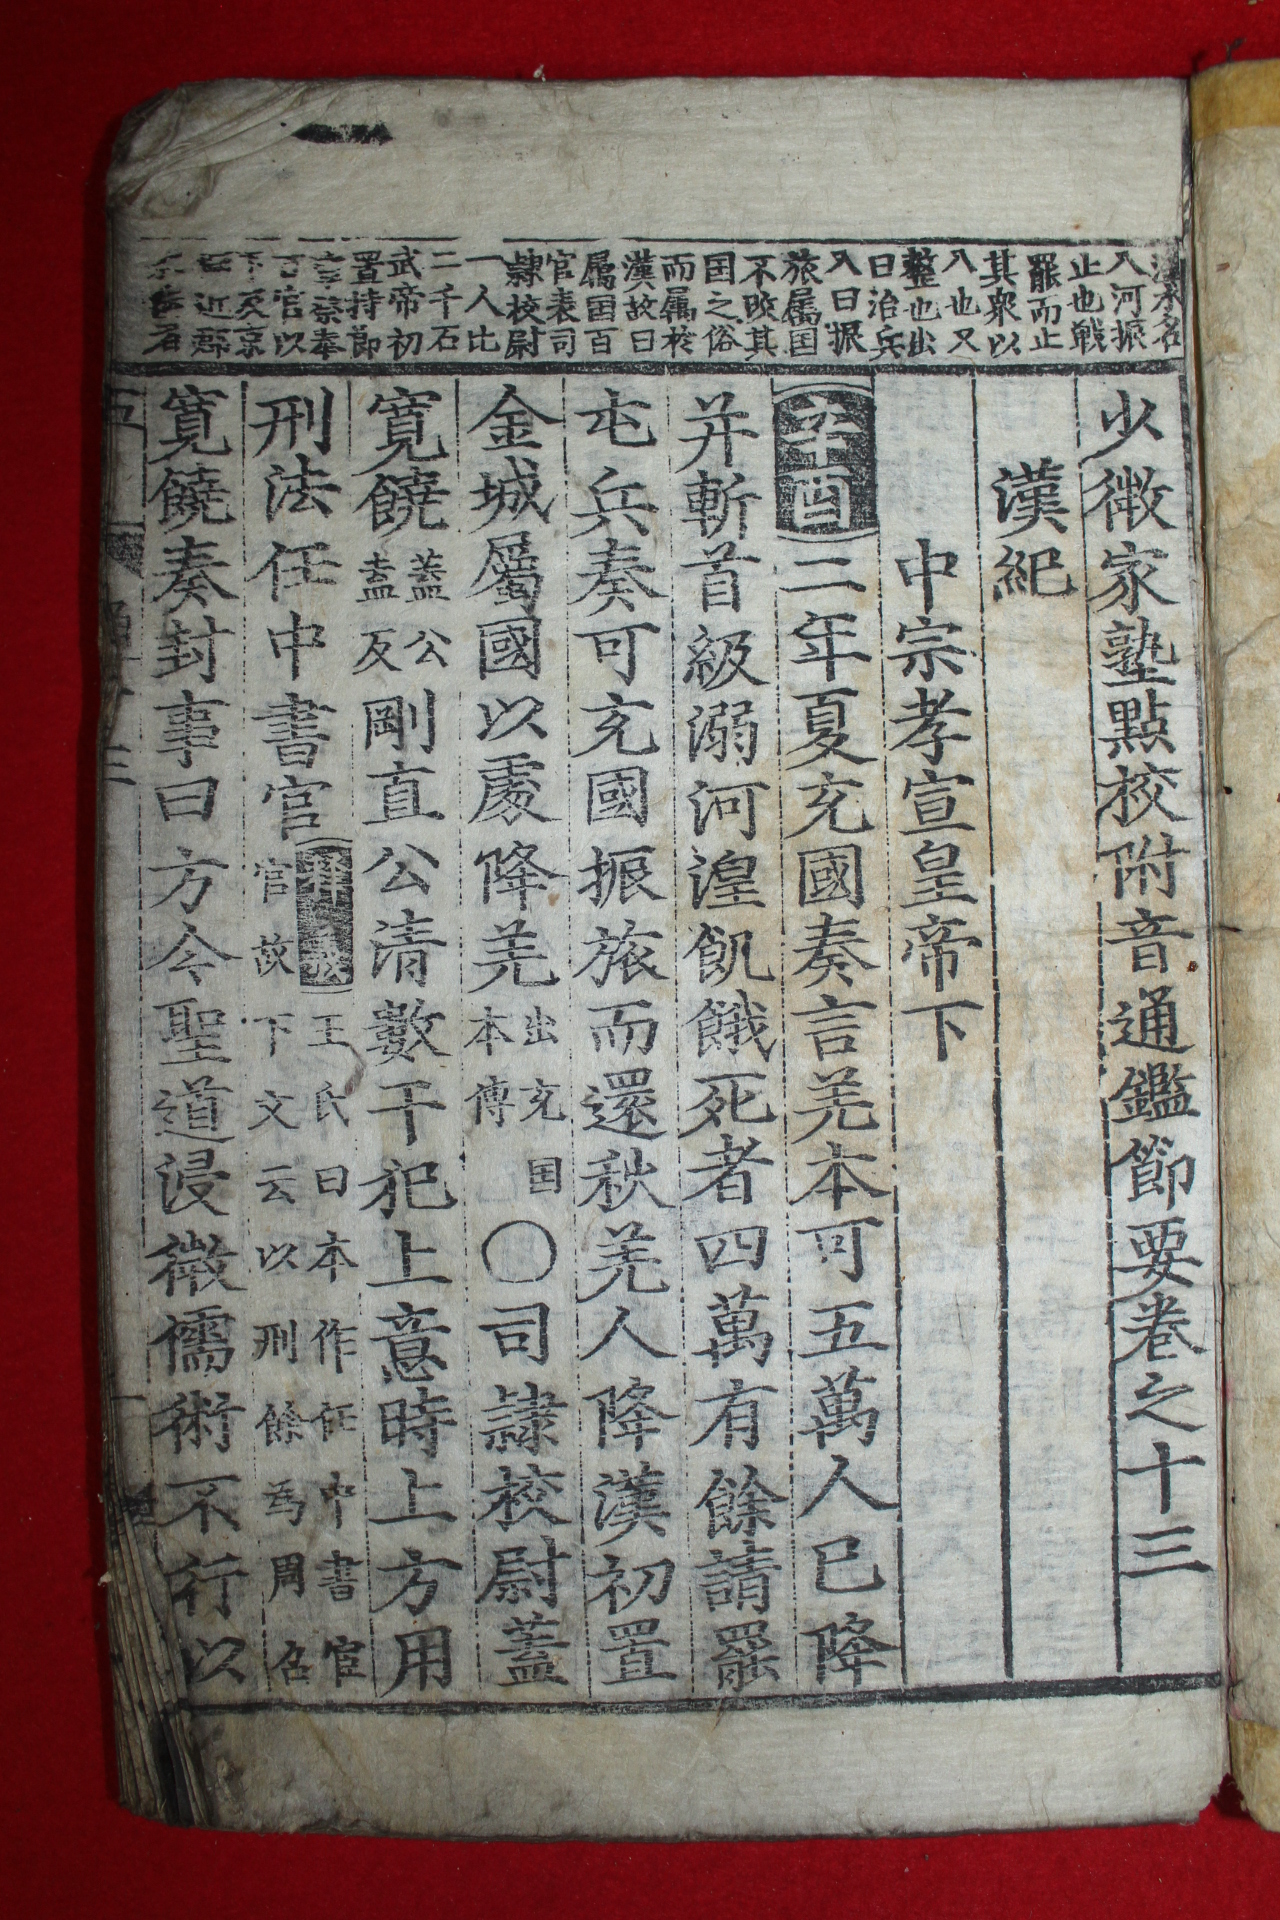 少微家塾點校附音通鑑節要卷之十三
漢紀
中宗孝宣皇帝下
辛酉二年夏充國奏言羌本可五萬人已降
幷斬首級溺河湟飢餓死者四萬有餘請罷
屯兵奏可充國振旅而還秋羌人降漢初置
金城屬國以處降羌出充国本傳○司隷校尉蓋
寬饒蓋公盍反剛直公清數干犯上意時上方用
刑法任中書官釋義王氏曰本作任中書宦官故下文云以刑餘為周召
寬饒奏封事曰方今聖道浸微儒術不行以
湟水名
入河振
止也戦
罷而止
其衆以
入也又
整也出
曰治兵
入曰振
旅属国
不改其
国之俗
而属於
漢故曰
属国百
官表司
隷校尉
一人比
二千石
武帝初
置持節